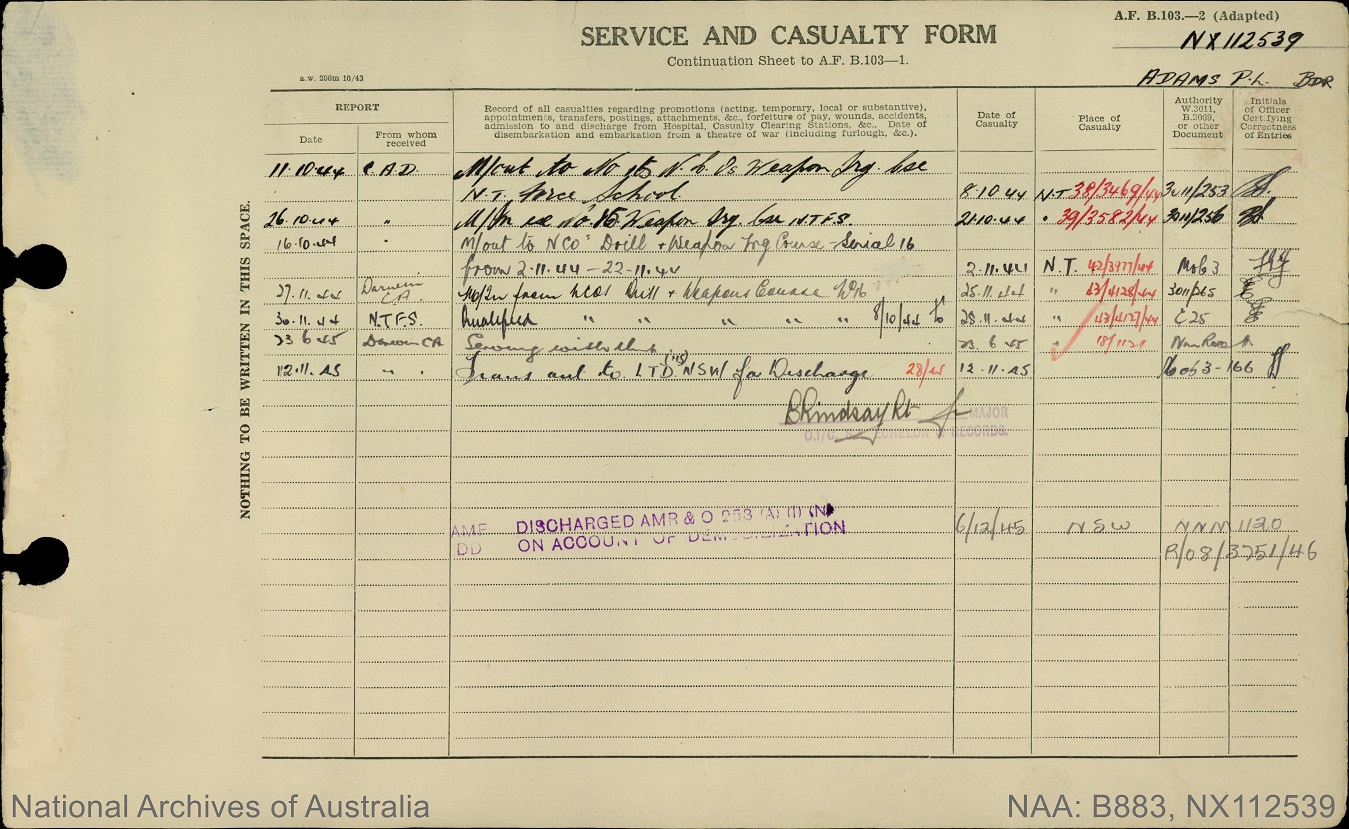 A.F. B.103.—2 (Adapted)
NX112539
SERVICE AND CASUALTY FORM
Continuation Sheet to A.F. B.103—1.
ADAMS P.L. BDR
a.w. 200m 10/43
NOTHING TO BE WRITTEN IN THIS SPACE.
REPORT
Date
From whom received
Record of all casualties regarding promotions (acting, temporary, local or substantive),
appointments, transfers, postings, attachments, &c., forfeiture of pay, wounds, accidents,
admission to and discharge from Hospital, Casualty Clearing Stations, &c., Date of
disembarkation and embarkation from a theatre of war (including furlough, &c.).
Date of Casualty
Place of Casualty
Authority W.3011, B.2069, or other Document
Initials of Officer Certifying Correctness of Entries
11.10.44 C.A.D. M/out to No 15 N.C.Os Weapon Trg. Cse
N.T. Force School 8.10.44 N.T 38/3469/44 3011/253
26.10.44 " M/In ex No. 15 Weapon Trg. Cse N.T.F.S. 21.10.44 " 39/3582/44 3011/256
16.10.44 " M/out to NCOs Drill + Weapon Trg Course Serial 16
from 2.11.44 — 22.11.44 2.11.44 N.T. 42/3977/44 Mob 3
27.11.44 Darwin CA M/In from NCOs Drill + Weapons Course 25.11.44 " 43/4128/44 3011/265
30.11.44 N.T.F.S. Qualified " " " " " 8/10/44 25.11.44 " 43/4127/44 C25
23 6 45 Darwin CA Serving with this 23.6.45 " 18/1121 Nom Roll
12.11.45 " " Trans out to L.T.D. (NS) NSW for Discharge 28/45 12.11.45 Mob 3-166
B Lindsay Lt for MAJOR
O.I/C. ECHELON & RECORDS.
AMF DISCHARGED AMR & O 253 (A) (I) (N) 6/12/45 NSW NNM1120
DD ON ACCOUNT OF DEMOBILIZATION R/08/3751/46
National Archives of Australia
NAA: B883, NX112539